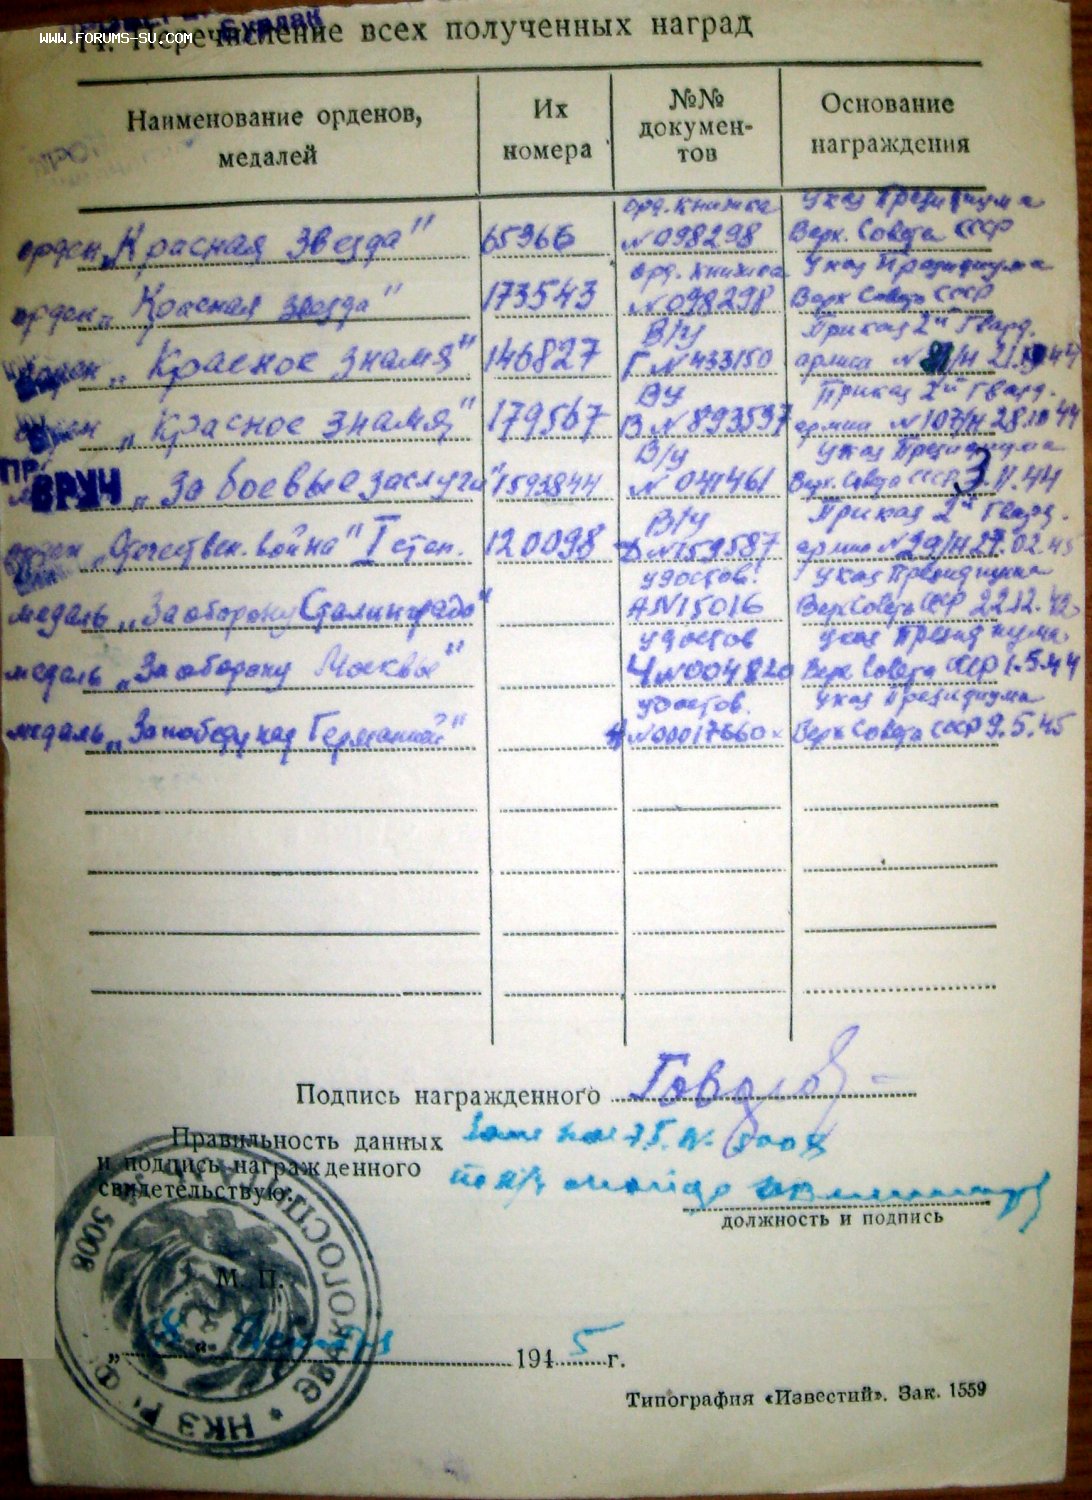 www.forums-su.com
14. Перечисление всех полученных наград
Наименование орденов,
медалей
Их
номера
№№
докумен-
тов
Основание
награждения
орден „Красная звезда" 65966 орд. книжка №098298 Указ Президиума Верх. Совета СССР
орден „Красная звезда" 173543 орд. книжка №098298 Указ Президиума Верх Совета СССР
„Красное знамя" 146827 В/у Г №433150 Приказ 2й Гвард. армии
„Красное знамя" 179567 ВУ В №893597 Приказ 2й Гвард. армии №107/н 28.10.44
ВРУЧ „За боевые заслуги" 1593844 В/у № 041461 Указ Президиума Верх. Совета СССР 3.11.44
„Отечествен. война" I степ. 120098 В/У Д №159587 Приказ 2й Гвард. армии №29/н 27.02.45
медаль „За оборону Сталинграда" удостов. А №15016 Указ Президиума Верх Совета СССР 22.12.42
медаль „За оборону Москвы" удостов Ч №004820 Указ Президиума Верх Совета СССР 1.5.44
медаль „За победу над Германией" удостов. №0017660 Указ Президиума Верх Совета СССР 9.5.45
Подпись награжденного
Правильность данных
и подпись награжденного
свидетельствую:
должность и подпись
М. П.
1945 г.
Типография «Известий». Зак. 1559
ЭВАКОГОСПИТАЛЬ № 5008 НКЗ